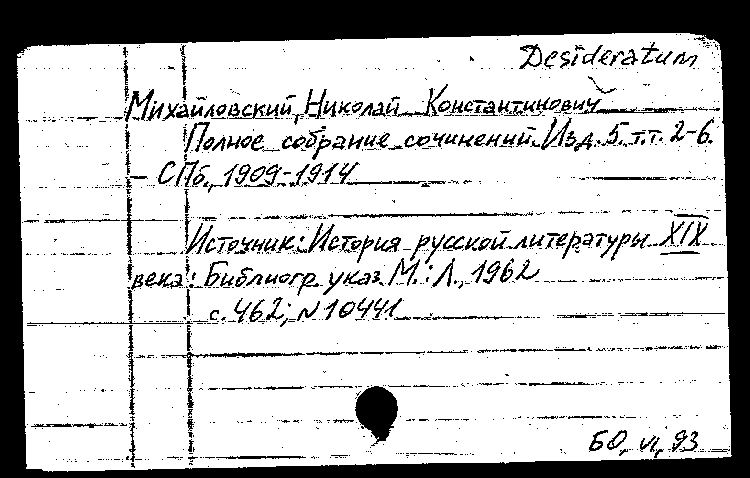 Desideratum
Михайловский, Николай Константинович
Полное собрание сочинений. Изд. 5. т.т. 2-6.
– СПб., 1909-1914
Источник: История русской литературы XIX
века: Библиогр. указ. М.: Л., 1962
с. 462; N 10441
БО, VI, 93